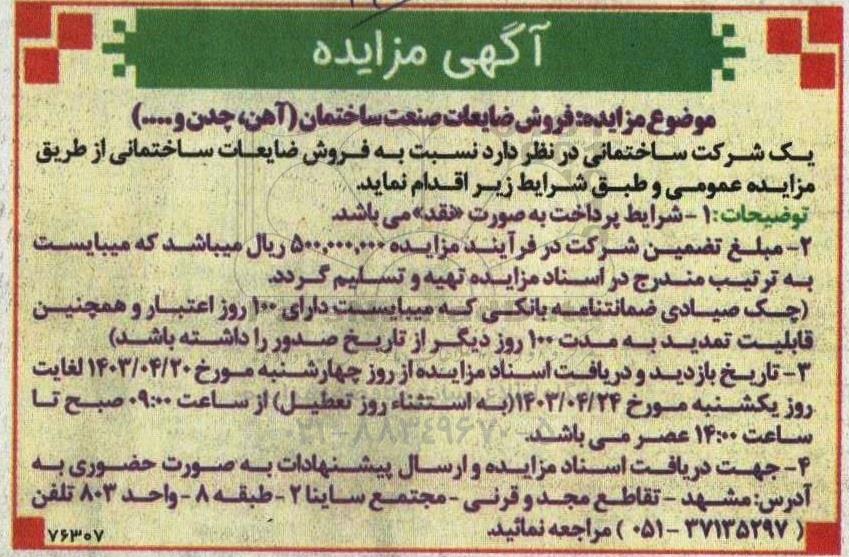 آگهی مزایده
موضوع مزایده: فروش ضایعات صنعت ساختمان (آهن، چدن و....)
یک شرکت ساختمانی در نظر دارد نسبت به فروش ضایعات ساختمانی از طریق
مزایده عمومی و طبق شرایط زیر اقدام نماید.
توضیحات: ۱- شرایط پرداخت به صورت «نقد» می باشد.
۲- مبلغ تضمین شرکت در فرآیند مزایده ۵۰۰,۰۰۰,۰۰۰ ریال میباشد که میبایست
به ترتیب مندرج در اسناد مزایده تهیه و تسلیم گردد.
(چک صیادی ضمانتنامه بانکی که میبایست دارای ۱۰۰ روز اعتبار و همچنین
قابلیت تمدید به مدت ۱۰۰ روز دیگر از تاریخ صدور را داشته باشد)
۳- تاریخ بازدید و دریافت اسناد مزایده از روز چهارشنبه مورخ ۱۴۰۳/۰۴/۲۰ لغایت
روز یکشنبه مورخ ۱۴۰۳/۰۴/۲۴ (به استثناء روز تعطیل) از ساعت ۰۹:۰۰ صبح تا
ساعت ۱۴:۰۰ عصر می باشد.
۰۲۱-۸۸۳۴۹۶۷۰-۵
۴- جهت دریافت اسناد مزایده و ارسال پیشنهادات به صورت حضوری به
آدرس: مشهد - تقاطع مجد و قرنی - مجتمع ساینا ۲ - طبقه ۸ - واحد ۸۰۳ تلفن
(۰۵۱-۳۷۱۳۵۲۹۷) مراجعه نمائید.
۷۶۳۰۷